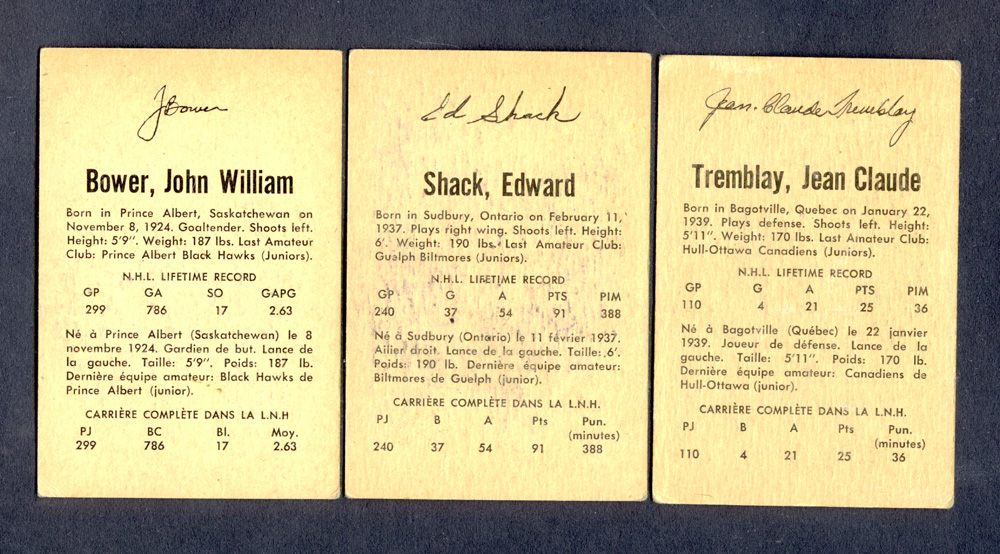 J Bower
Bower, John William
Born in Prince Albert, Saskatchewan on
November 8, 1924. Goaltender. Shoots left.
Height: 5'9". Weight: 187 lbs. Last Amateur
Club: Prince Albert Black Hawks (Juniors).
N.H.L. LIFETIME RECORD
GP GA SO GAPG
299 786 17 2.63
Né à Prince Albert (Saskatchewan) le 8
novembre 1924. Gardien de but. Lance de
la gauche. Taille: 5'9". Poids: 187 lb.
Dernière équipe amateur: Black Hawks de
Prince Albert (junior).
CARRIÈRE COMPLÈTE DANS LA L.N.H
PJ BC Bl. Moy.
299 786 17 2.63
Ed Shack
Shack, Edward
Born in Sudbury, Ontario on February 11,
1937. Plays right wing. Shoots left. Height:
6'. Weight: 190 lbs. Last Amateur Club:
Guelph Biltmores (Juniors).
N.H.L. LIFETIME RECORD
GP G A PTS PIM
240 37 54 91 388
Né à Sudbury (Ontario) le 11 février 1937.
Ailier droit. Lance de la gauche. Taille: 6'.
Poids: 190 lb. Dernière équipe amateur:
Biltmores de Guelph (junior).
CARRIÈRE COMPLÈTE DANS LA L.N.H.
PJ B A Pts Pun.
(minutes)
240 37 54 91 388
Jean-Claude Tremblay
Tremblay, Jean Claude
Born in Bagotville, Quebec on January 22,
1939. Plays defense. Shoots left. Height:
5'11". Weight: 170 lbs. Last Amateur Club:
Hull-Ottawa Canadiens (Juniors).
N.H.L. LIFETIME RECORD
GP G A PTS PIM
110 4 21 25 36
Né à Bagotville (Québec) le 22 janvier
1939. Joueur de défense. Lance de la
gauche. Taille: 5'11". Poids: 170 lb.
Dernière équipe amateur: Canadiens de
Hull-Ottawa (junior).
CARRIÈRE COMPLÈTE DANS LA L.N.H.
PJ B A Pts Pun.
(minutes)
110 4 21 25 36